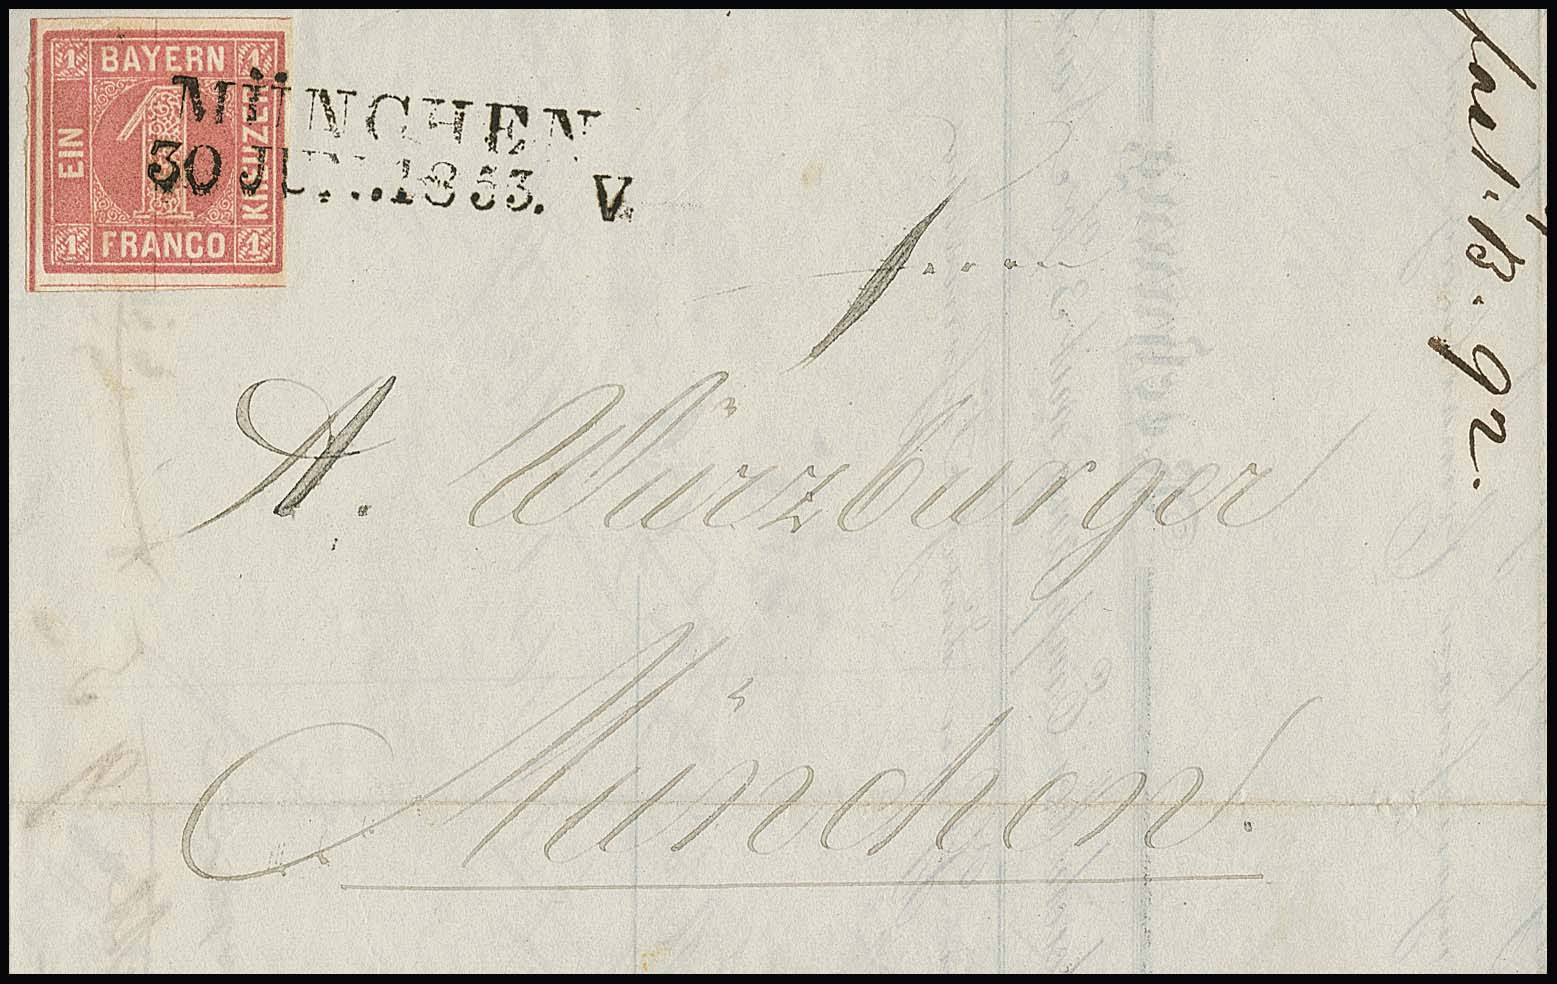 1 BAYERN 1
EIN
KREUZER
1
1 FRANCO 1
MÜNCHEN
30 JUN. 1853. V.
Herrn
A. Würzburger
München.